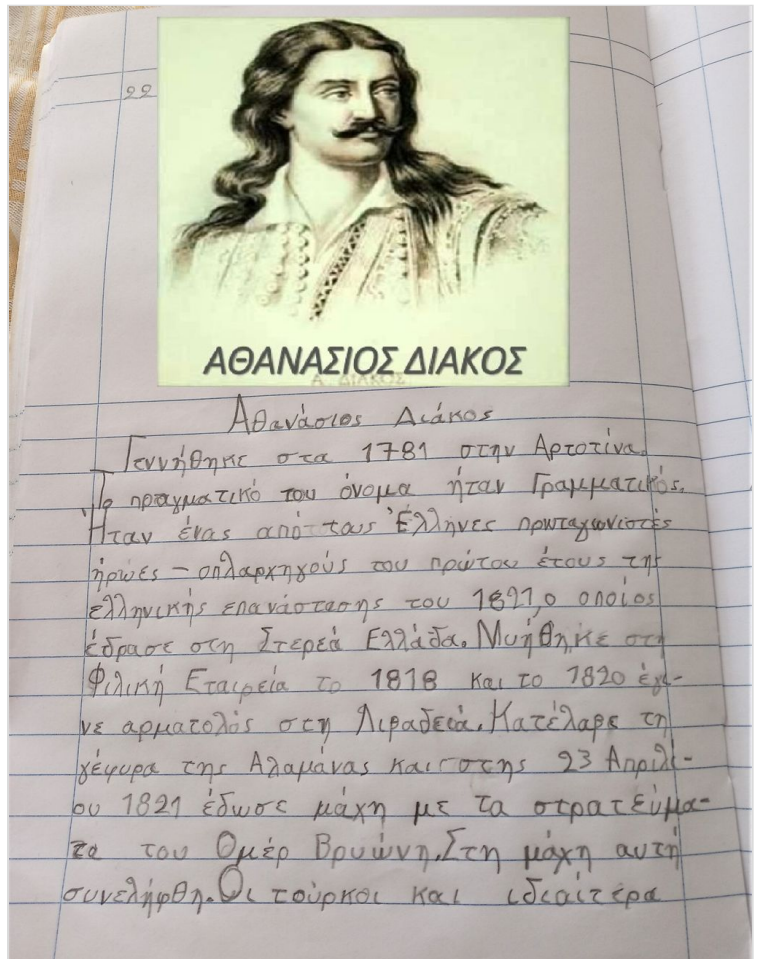 22
ΑΘΑΝΑΣΙΟΣ ΔΙΑΚΟΣ
Α. ΔΙΑΚΟΣ
Αθανάσιος Διάκος
Γεννήθηκε στα 1781 στην Αρτοτίνα.
Το πραγματικό του όνομα ήταν Γραμματικός.
Ήταν ένας από τους Έλληνες πρωταγωνιστές
ήρωες – οπλαρχηγούς του πρώτου έτους της
ελληνικής επανάστασης του 1821, ο οποίος
έδρασε στη Στερεά Ελλάδα. Μυήθηκε στη
Φιλική Εταιρεία το 1818 και το 1820 έγι-
νε αρματολός στη Λιβαδειά. Κατέλαβε τη
γέφυρα της Αλαμάνας και στης 23 Απριλί-
ου 1821 έδωσε μάχη με τα στρατεύμα-
τα του Ομέρ Βρυώνη. Στη μάχη αυτή
συνελήφθη. Οι τούρκοι και ιδιαίτερα